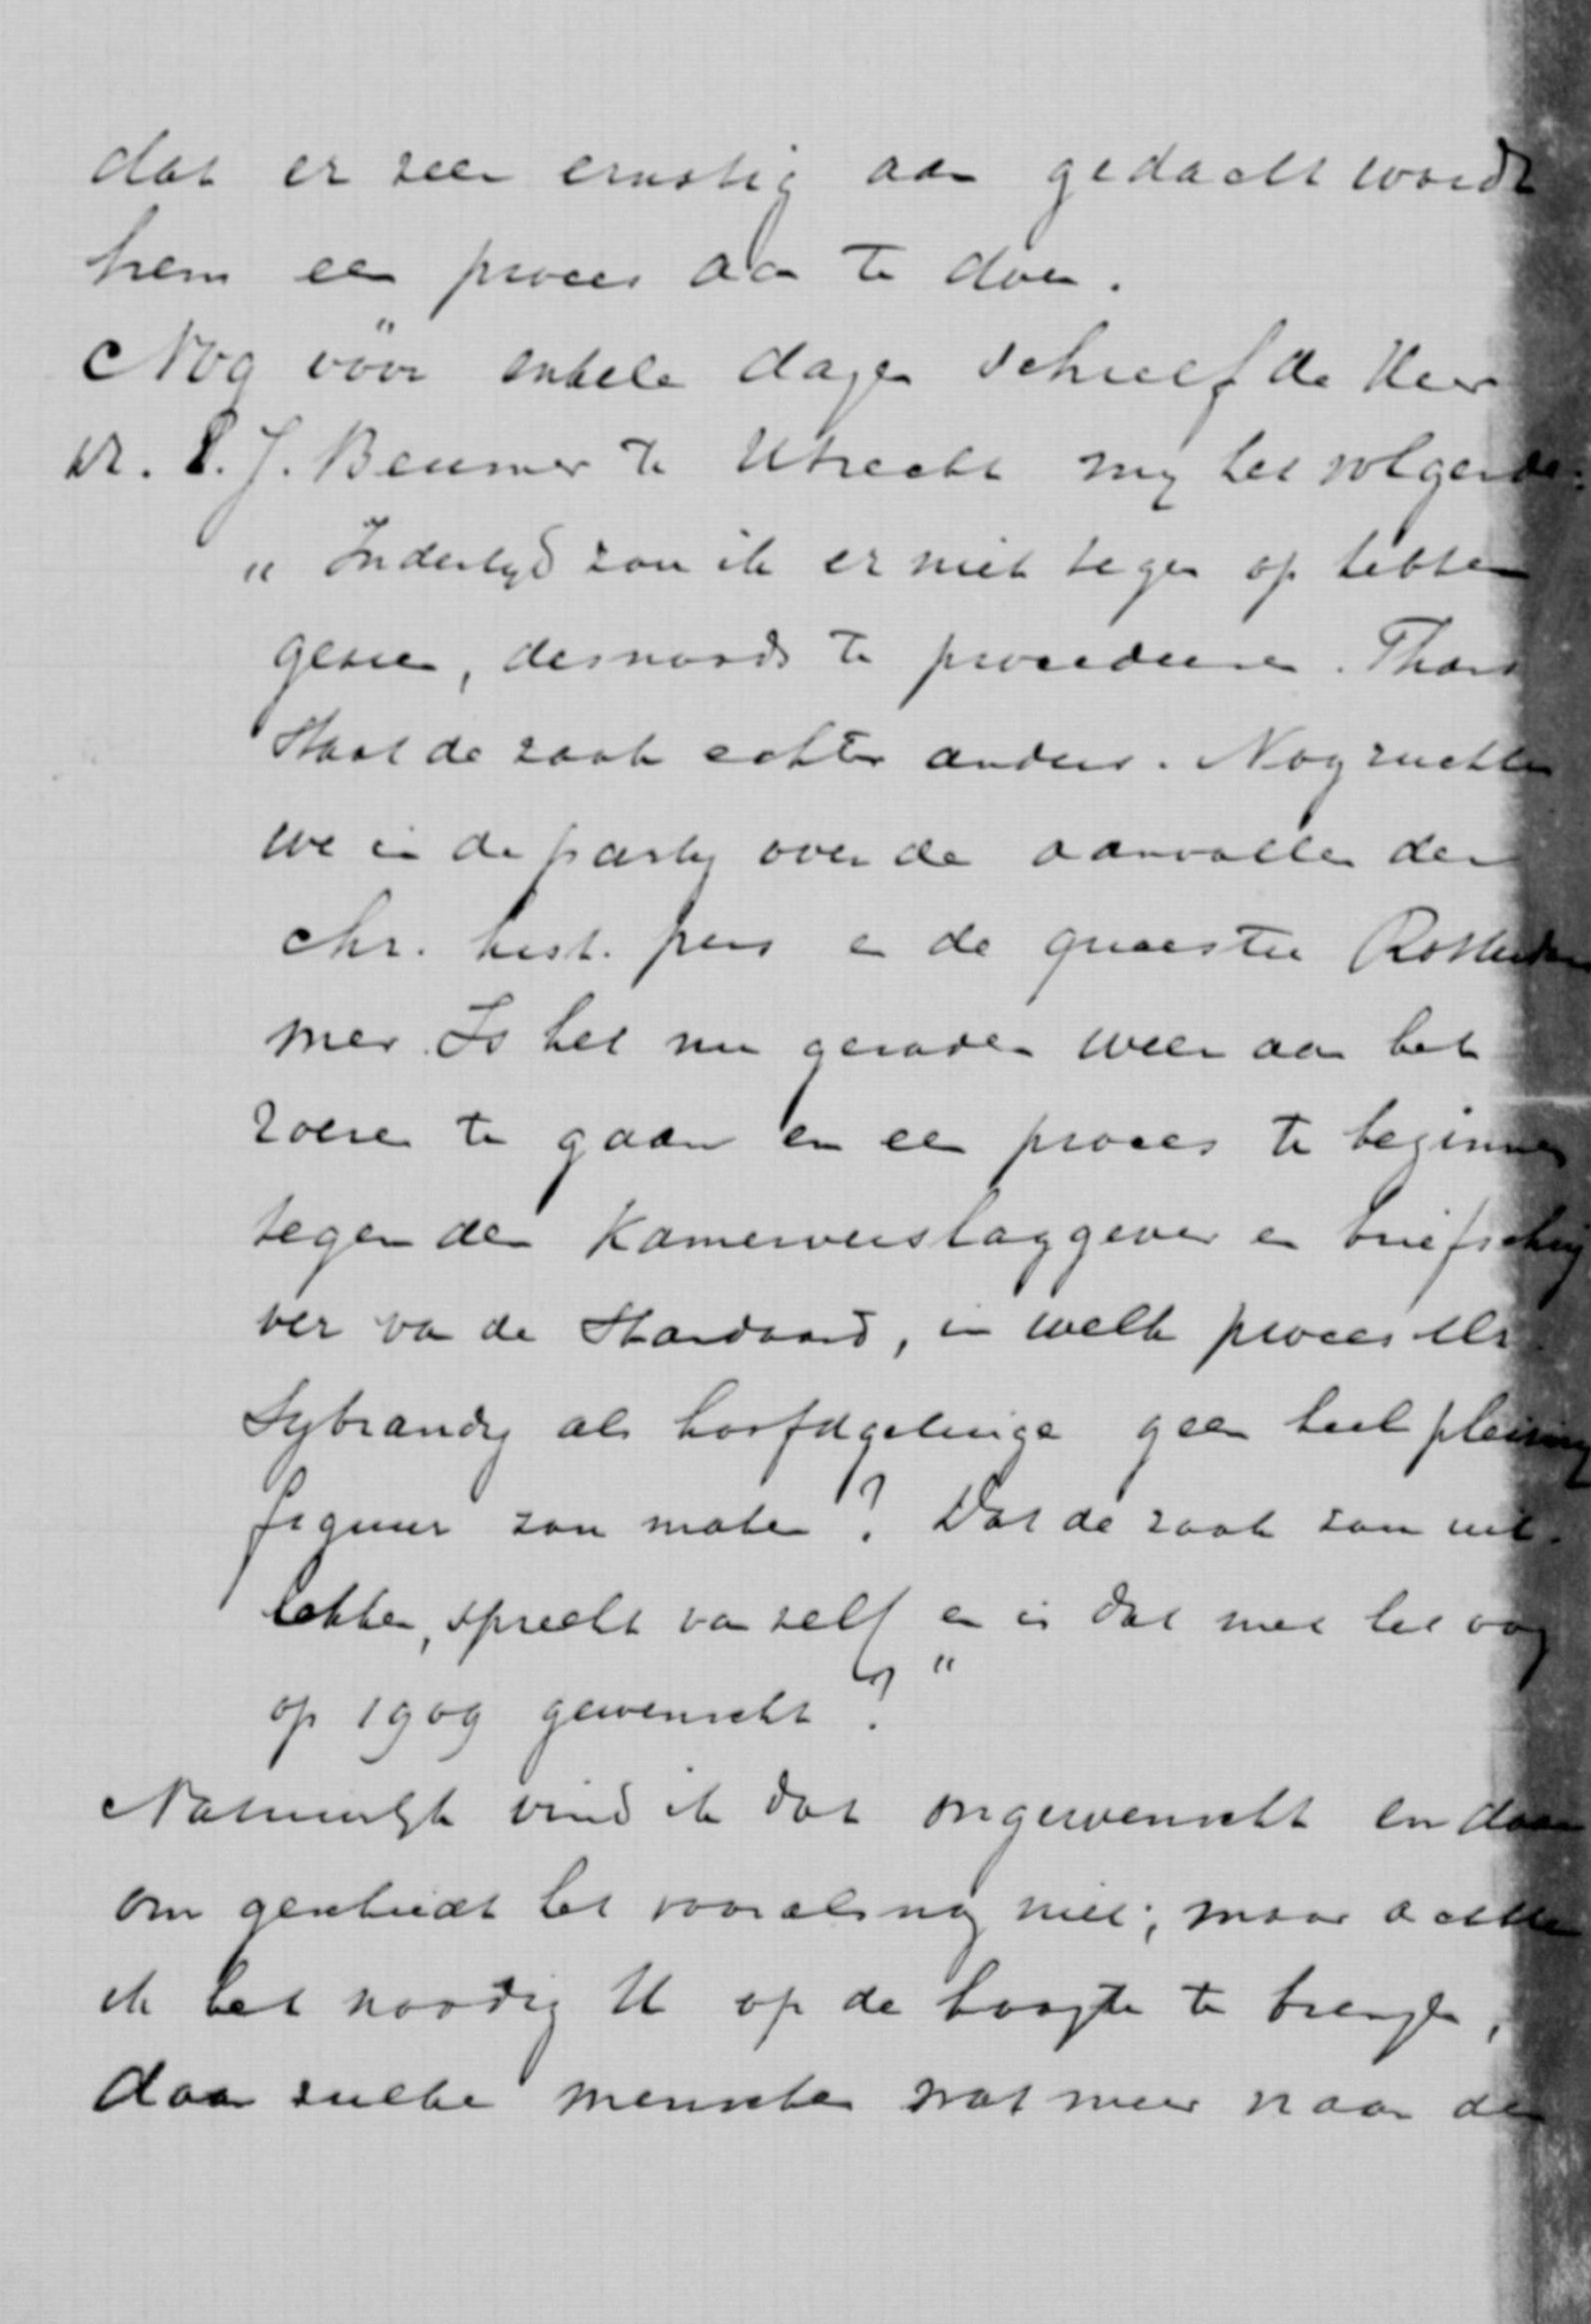 dat er zeer ernstig aan gedacht wordt
hem een proces aan te doen.
Nog vóór enkele dagen schreef de Heer
dr. E. J. Beumer te Utrecht mij het volgende:
"Indertijd zou ik er niet tegen op hebben
gezien, desnoods te procedeeren. Thans
staat de zaak echter anders. Nog zuchten
we in de partij over de aanvallen der
chr. hist. pers en de quaestie Rotterdam
mer. Is het nu geraden weer aan het
te gaan en een proces te beginnen
tegen den Kamerverslaggever en briefschrij
ver van de Standaard, in welk proces Ds.
Sybrandy als hoofdgetuige geen heel pleizierig
figuur zou maken? Dat de zaak zou uit-
lekken, spreekt van zelf en is dat met het oog
op 1909 gewenscht?"
Natuurlijk vind ik dat ongewenscht en daar
om geschiedt het vooralsnog niet; maar achtte
ik het noodig U op de hoogte te brengen,
daar zulke menschen wat meer naar de